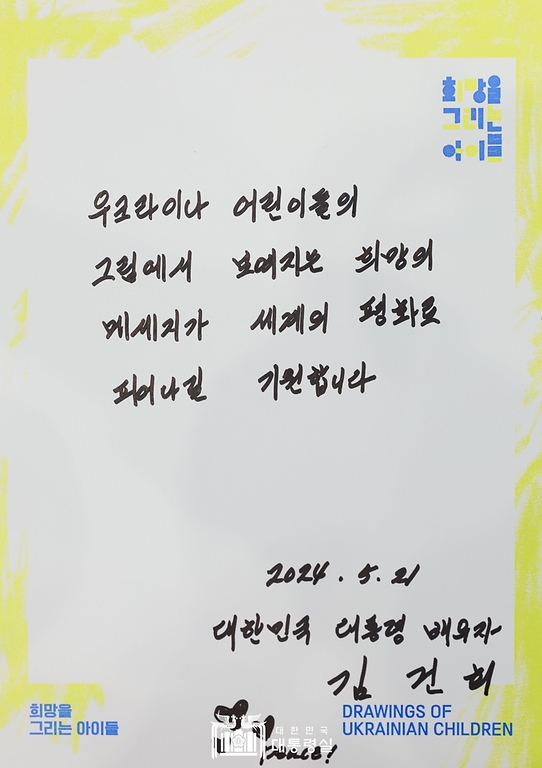 희망을
그리는
아이들
우크라이나 어린이들의
그림에서 보여지는 희망의
메세지가 세계의 평화로
피어나길 기원합니다
2024. 5. 21
대한민국 대통령 배우자
김건희
Peace!
희망을
그리는 아이들
대한민국
대통령실
DRAWINGS OF
UKRAINIAN CHILDREN